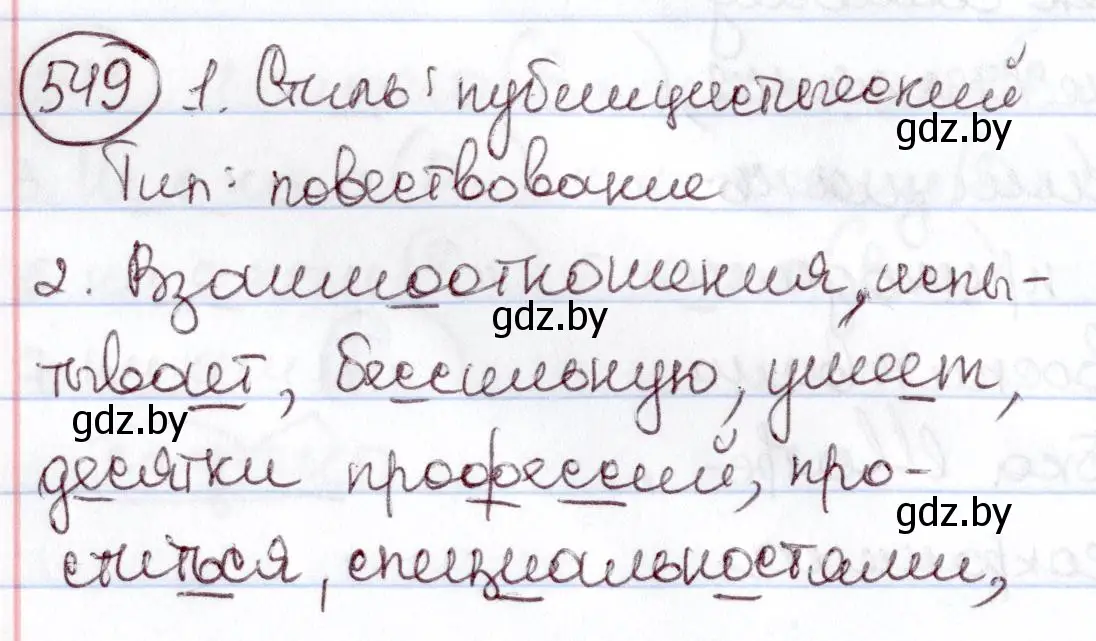 549 1. Стиль: публицистический
gdz.by
Тип: повествование
2. Взаимоотношения, испы-
gdz.by
тывает, бессильную, умеет,
gdz.by
десятки профессий, про-
gdz.by
ститься, специальностями,